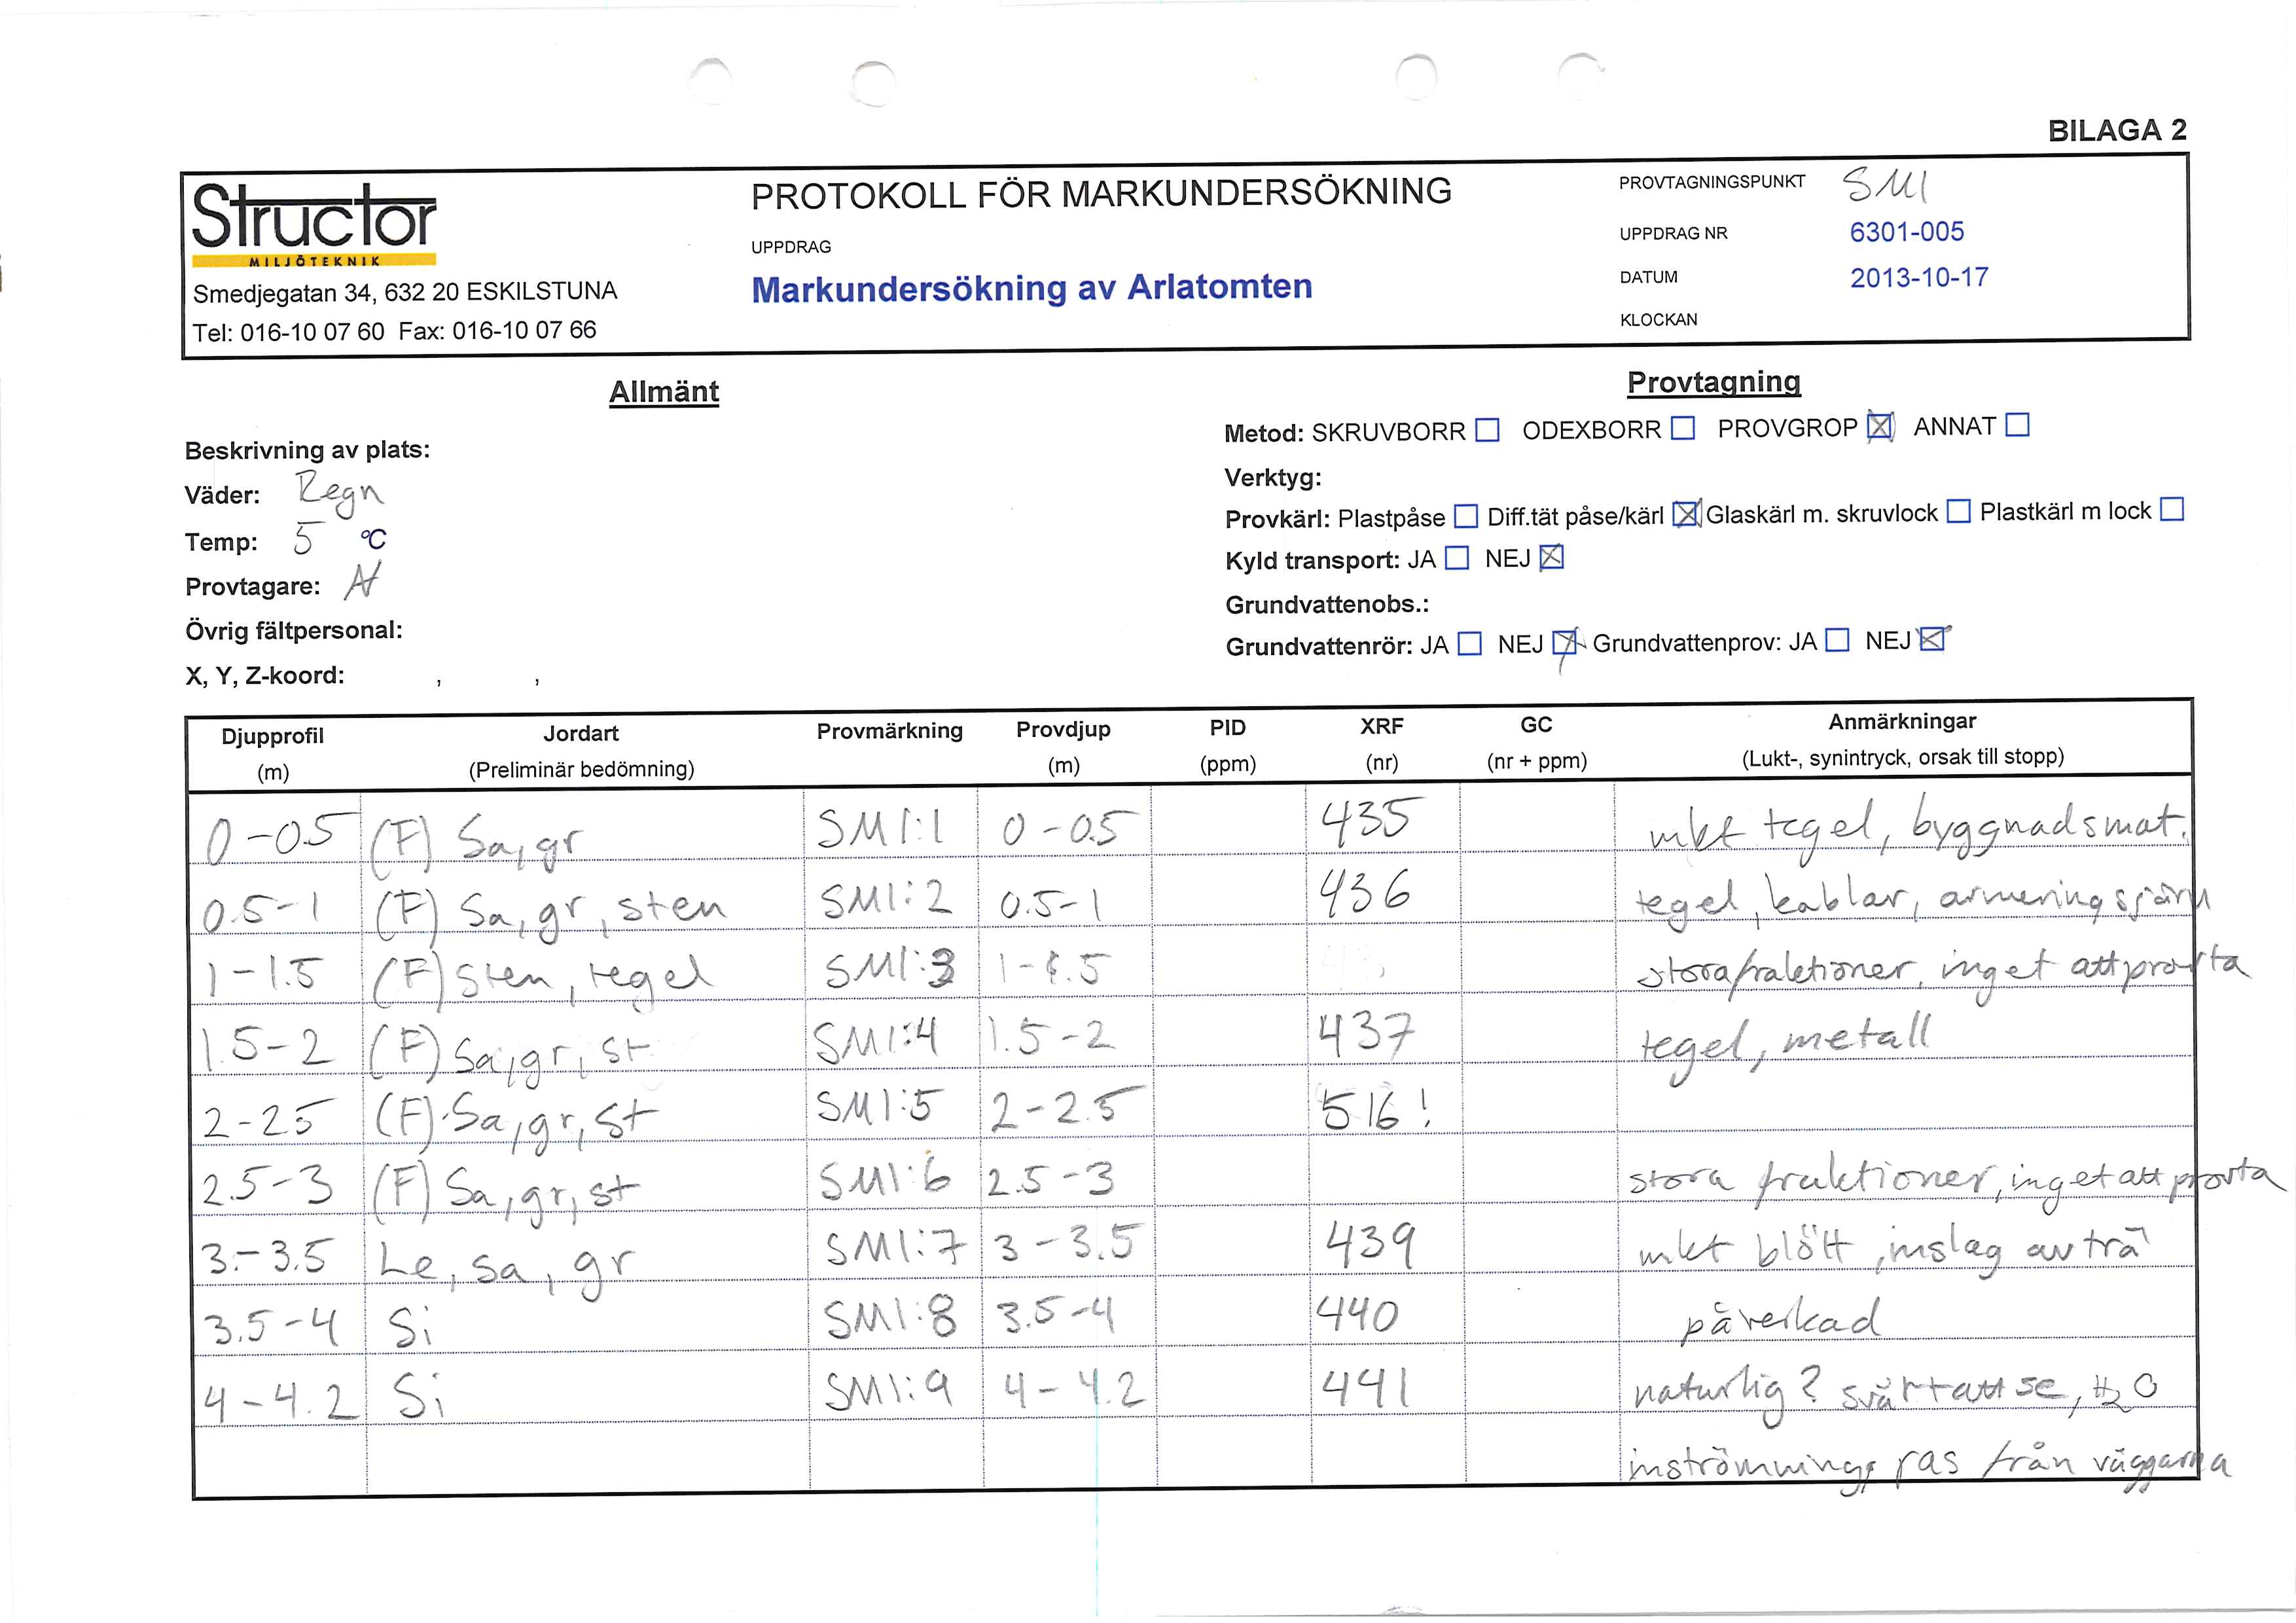 BILAGA 2
Structor
MILJÖTEKNIK
Smedjegatan 34, 632 20 ESKILSTUNA
Tel: 016-10 07 60 Fax: 016-10 07 66
PROTOKOLL FÖR MARKUNDERSÖKNING
UPPDRAG
Markundersökning av Arlatomten
PROVTAGNINGSPUNKT SM1
UPPDRAG NR 6301-005
DATUM 2013-10-17
KLOCKAN
Allmänt
Beskrivning av plats:
Väder: Regn
Temp: 5 °C
Provtagare:
Övrig fältpersonal:
X, Y, Z-koord: , ,
Provtagning
Metod: SKRUVBORR ☐ ODEXBORR ☐ PROVGROP ☒ ANNAT ☐
Verktyg:
Provkärl: Plastpåse ☐ Diff.tät påse/kärl ☒ Glaskärl m. skruvlock ☐ Plastkärl m lock ☐
Kyld transport: JA ☐ NEJ ☒
Grundvattenobs.:
Grundvattenrör: JA ☐ NEJ ☒ Grundvattenprov: JA ☐ NEJ ☒
Djupprofil Jordart Provmärkning Provdjup PID XRF GC Anmärkningar
(m) (Preliminär bedömning) (m) (ppm) (nr) (nr + ppm) (Lukt-, synintryck, orsak till stopp)
0-0.5 (F) Sa, gr SM1:1 0-0.5 435 mkt tegel, byggnadsmat.
0.5-1 (F) Sa, gr, sten SM1:2 0.5-1 436 tegel, kablar, armeringsjärn
1-1.5 (F) Sten, tegel SM1:3 1-1.5 stora fraktioner, inget att provta
1.5-2 (F) Sa, gr, st SM1:4 1.5-2 437 tegel, metall
2-2.5 (F) Sa, gr, st SM1:5 2-2.5 516!
2.5-3 (F) Sa, gr, st SM1:6 2.5-3 stora fraktioner, inget att provta
3-3.5 Le, sa, gr SM1:7 3-3.5 439 mkt blött, inslag av trä
3.5-4 Si SM1:8 3.5-4 440 påverkad
4-4.2 Si SM1:9 4-4.2 441 naturlig? svårt att se, H2O
inströmning, ras från väggarna